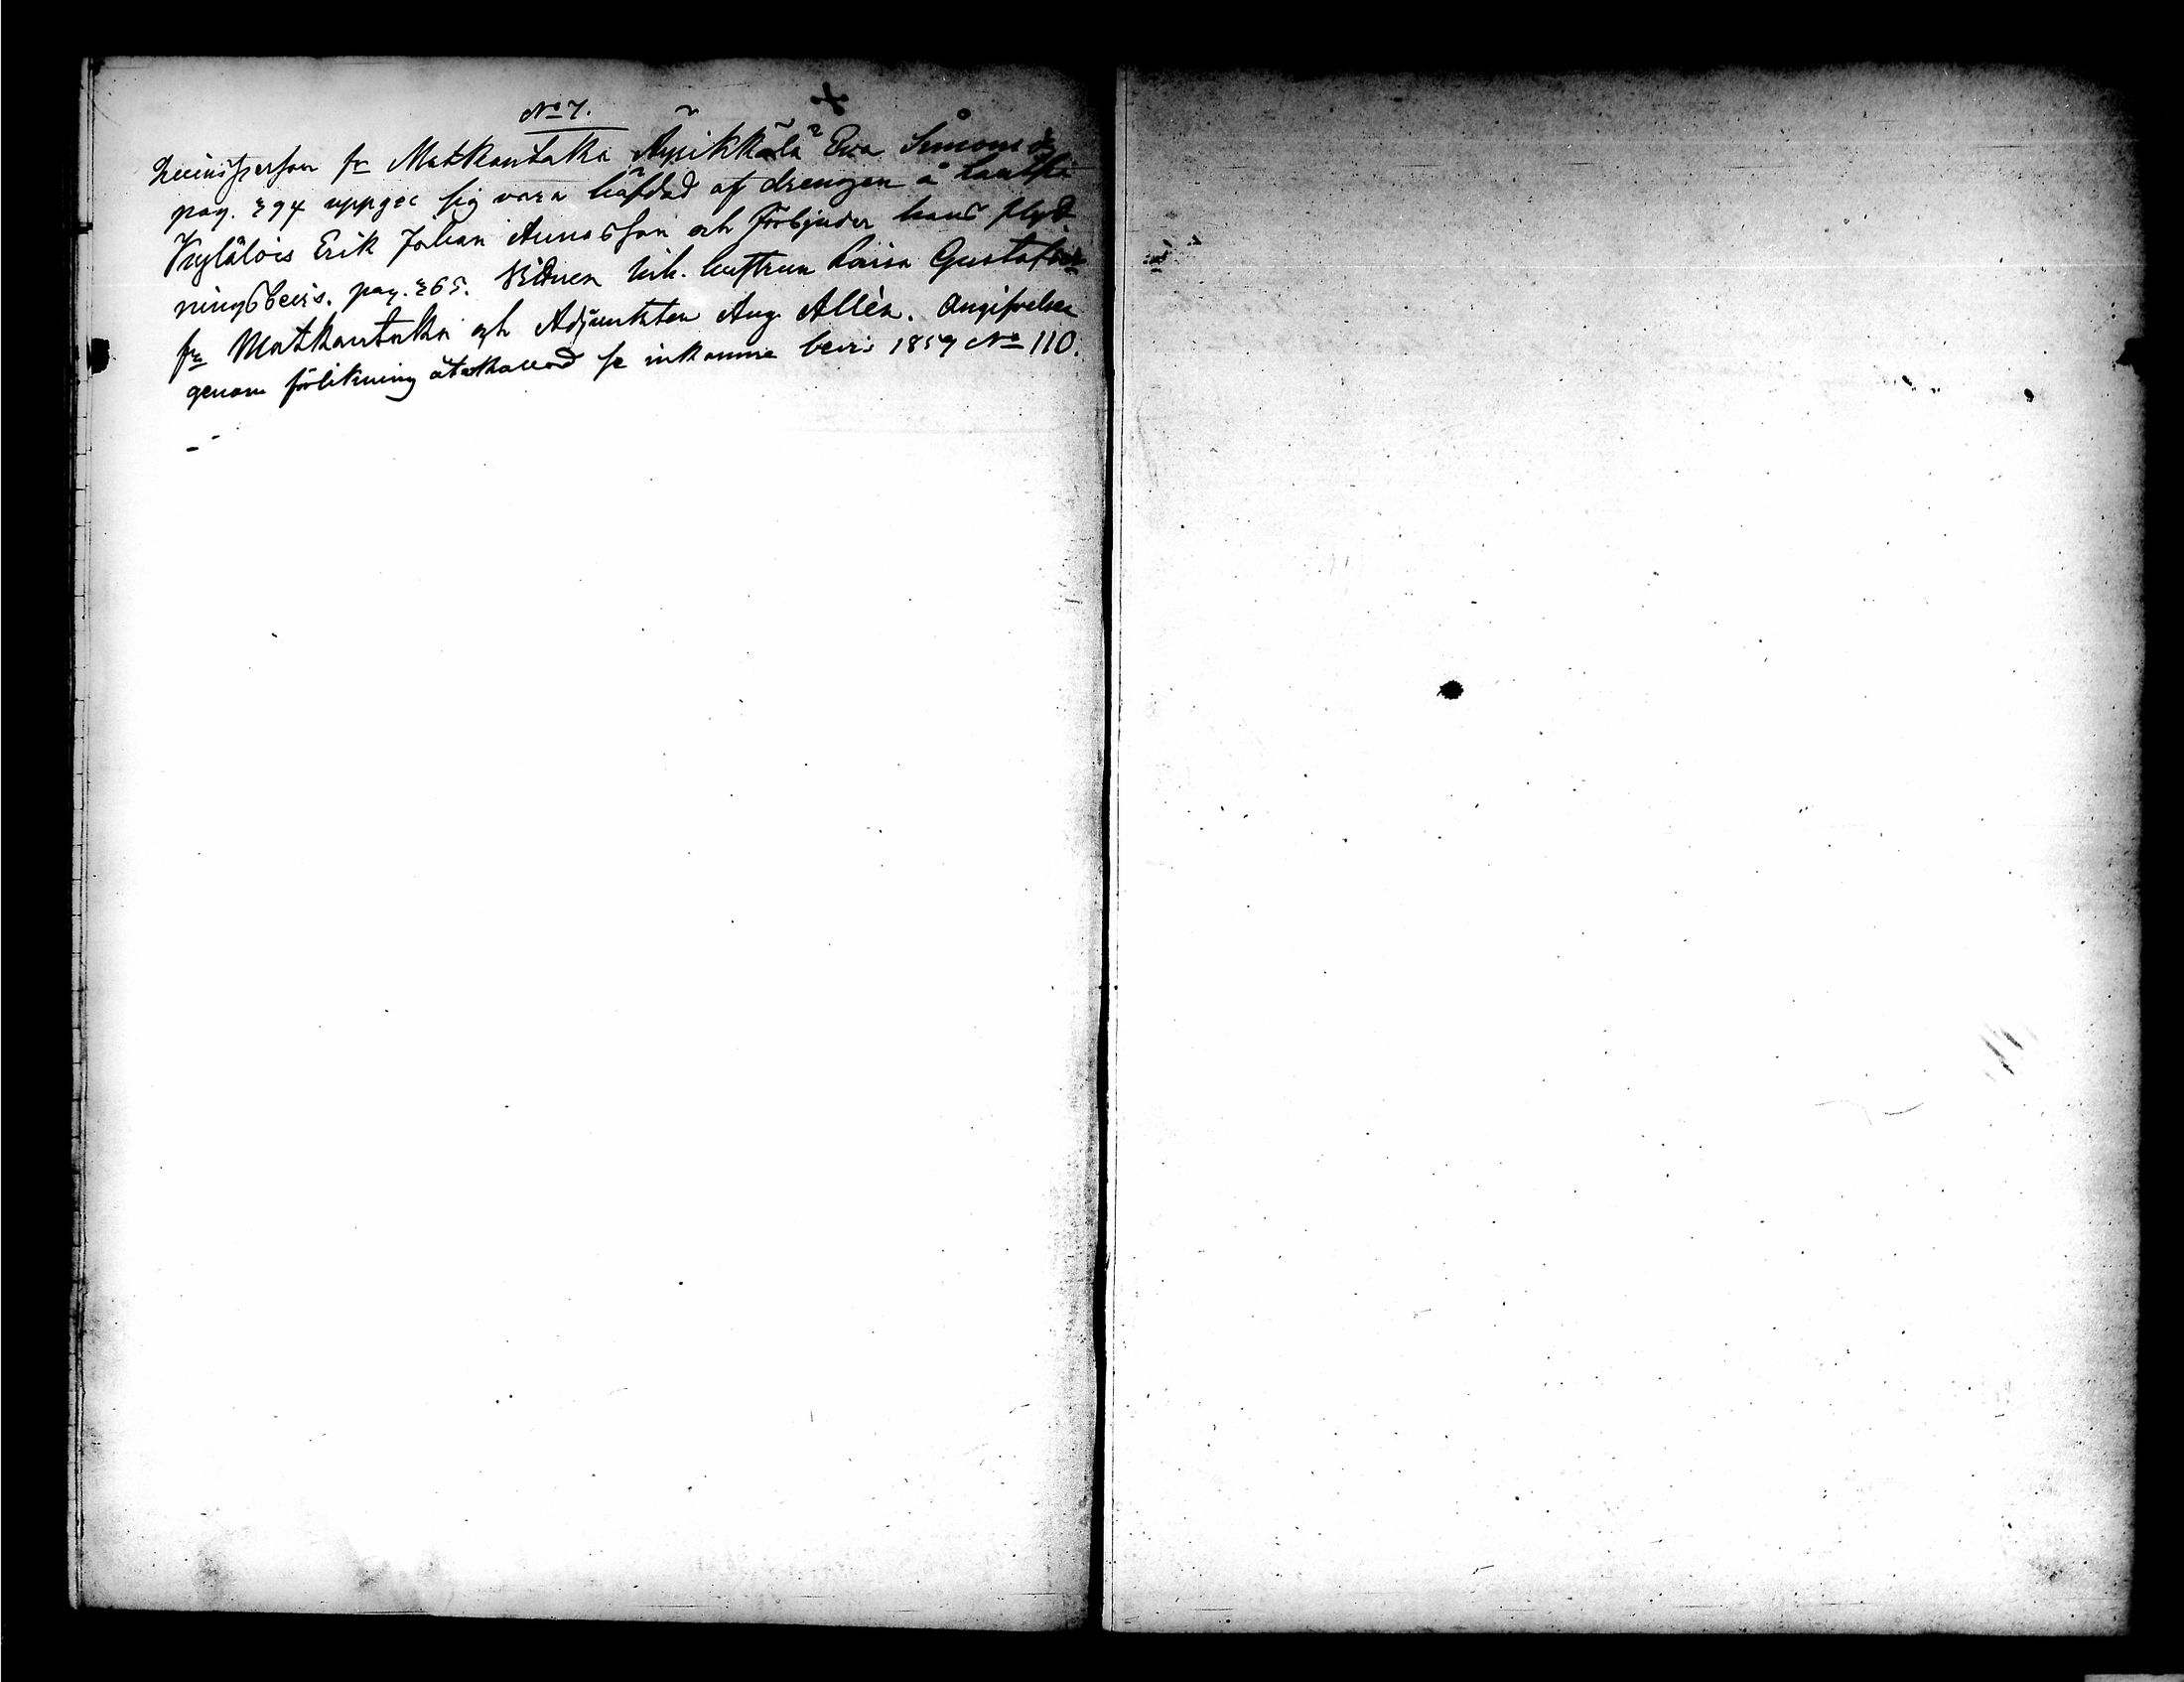 No 7.
Qvinsperson fr Matkantaka Äyrikkälä Eva Simonsdr
pag. 394 uppger sig vara häfdad af drengen å Lautila
Kylälois Erik Johan Annasson och förbjuder hans flytt
ningsbevis. pag. 265. Vidnen Inh. hustrun Lovisa Gustafsdr
fr Matkantaka och Adjunkten Aug. Allén. Angifvelsen
genom förlikning återkallad se inkomne bevis 1859 No 110.